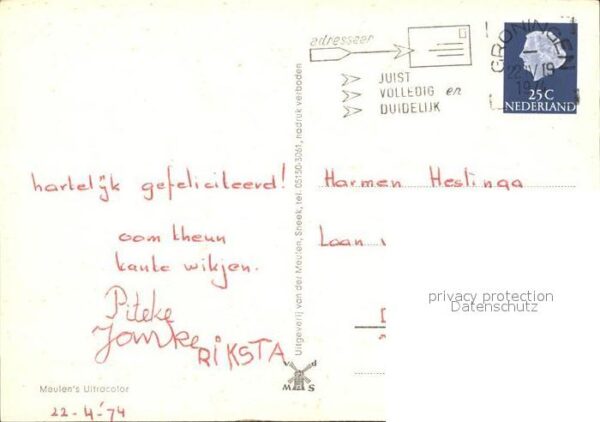 adresseer
JUIST
VOLLEDIG en
DUIDELIJK
GRONINGEN
1974
25 C
NEDERLAND
hartelijk gefeliciteerd!
oom theun
tante wikjen.
Piteke
Jomke
RiKSTA
Meulen's Ultracolor
22-4-'74
Uitgeverij van der Meulen, Sneek, tel. 05150-3061, nadruk verboden
M S
Harmen Hestinga
Laan
privacy protection
Datenschutz